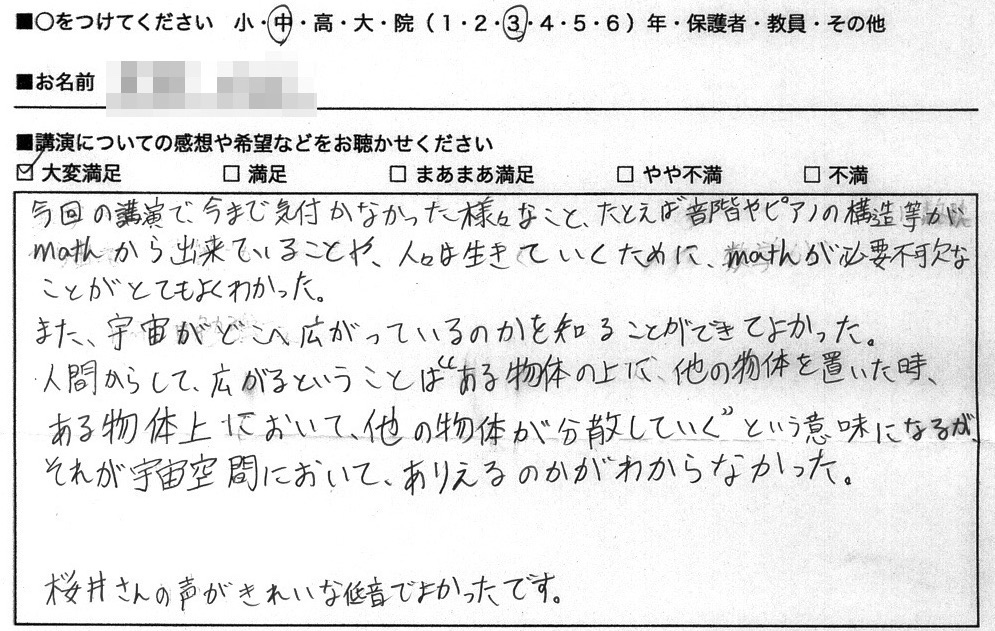 ■○をつけてください 小・中・高・大・院（1・2・3・4・5・6）年・保護者・教員・その他
■お名前
■講演についての感想や希望などをお聴かせください
☑ 大変満足 □ 満足 □ まあまあ満足 □ やや不満 □ 不満
今回の講演で、今まで気付かなかった様々なこと、たとえば音階やピアノの構造等が
mathから出来ていることや、人々は生きていくために、mathが必要不可欠な
ことがとてもよくわかった。
また、宇宙がどこへ広がっているのかを知ることができてよかった。
人間からして、広がるということは“ある物体の上に、他の物体を置いた時、
ある物体上において、他の物体が分散していく”という意味になるが、
それが宇宙空間において、ありえるのかがわからなかった。
桜井さんの声がきれいな低音でよかったです。